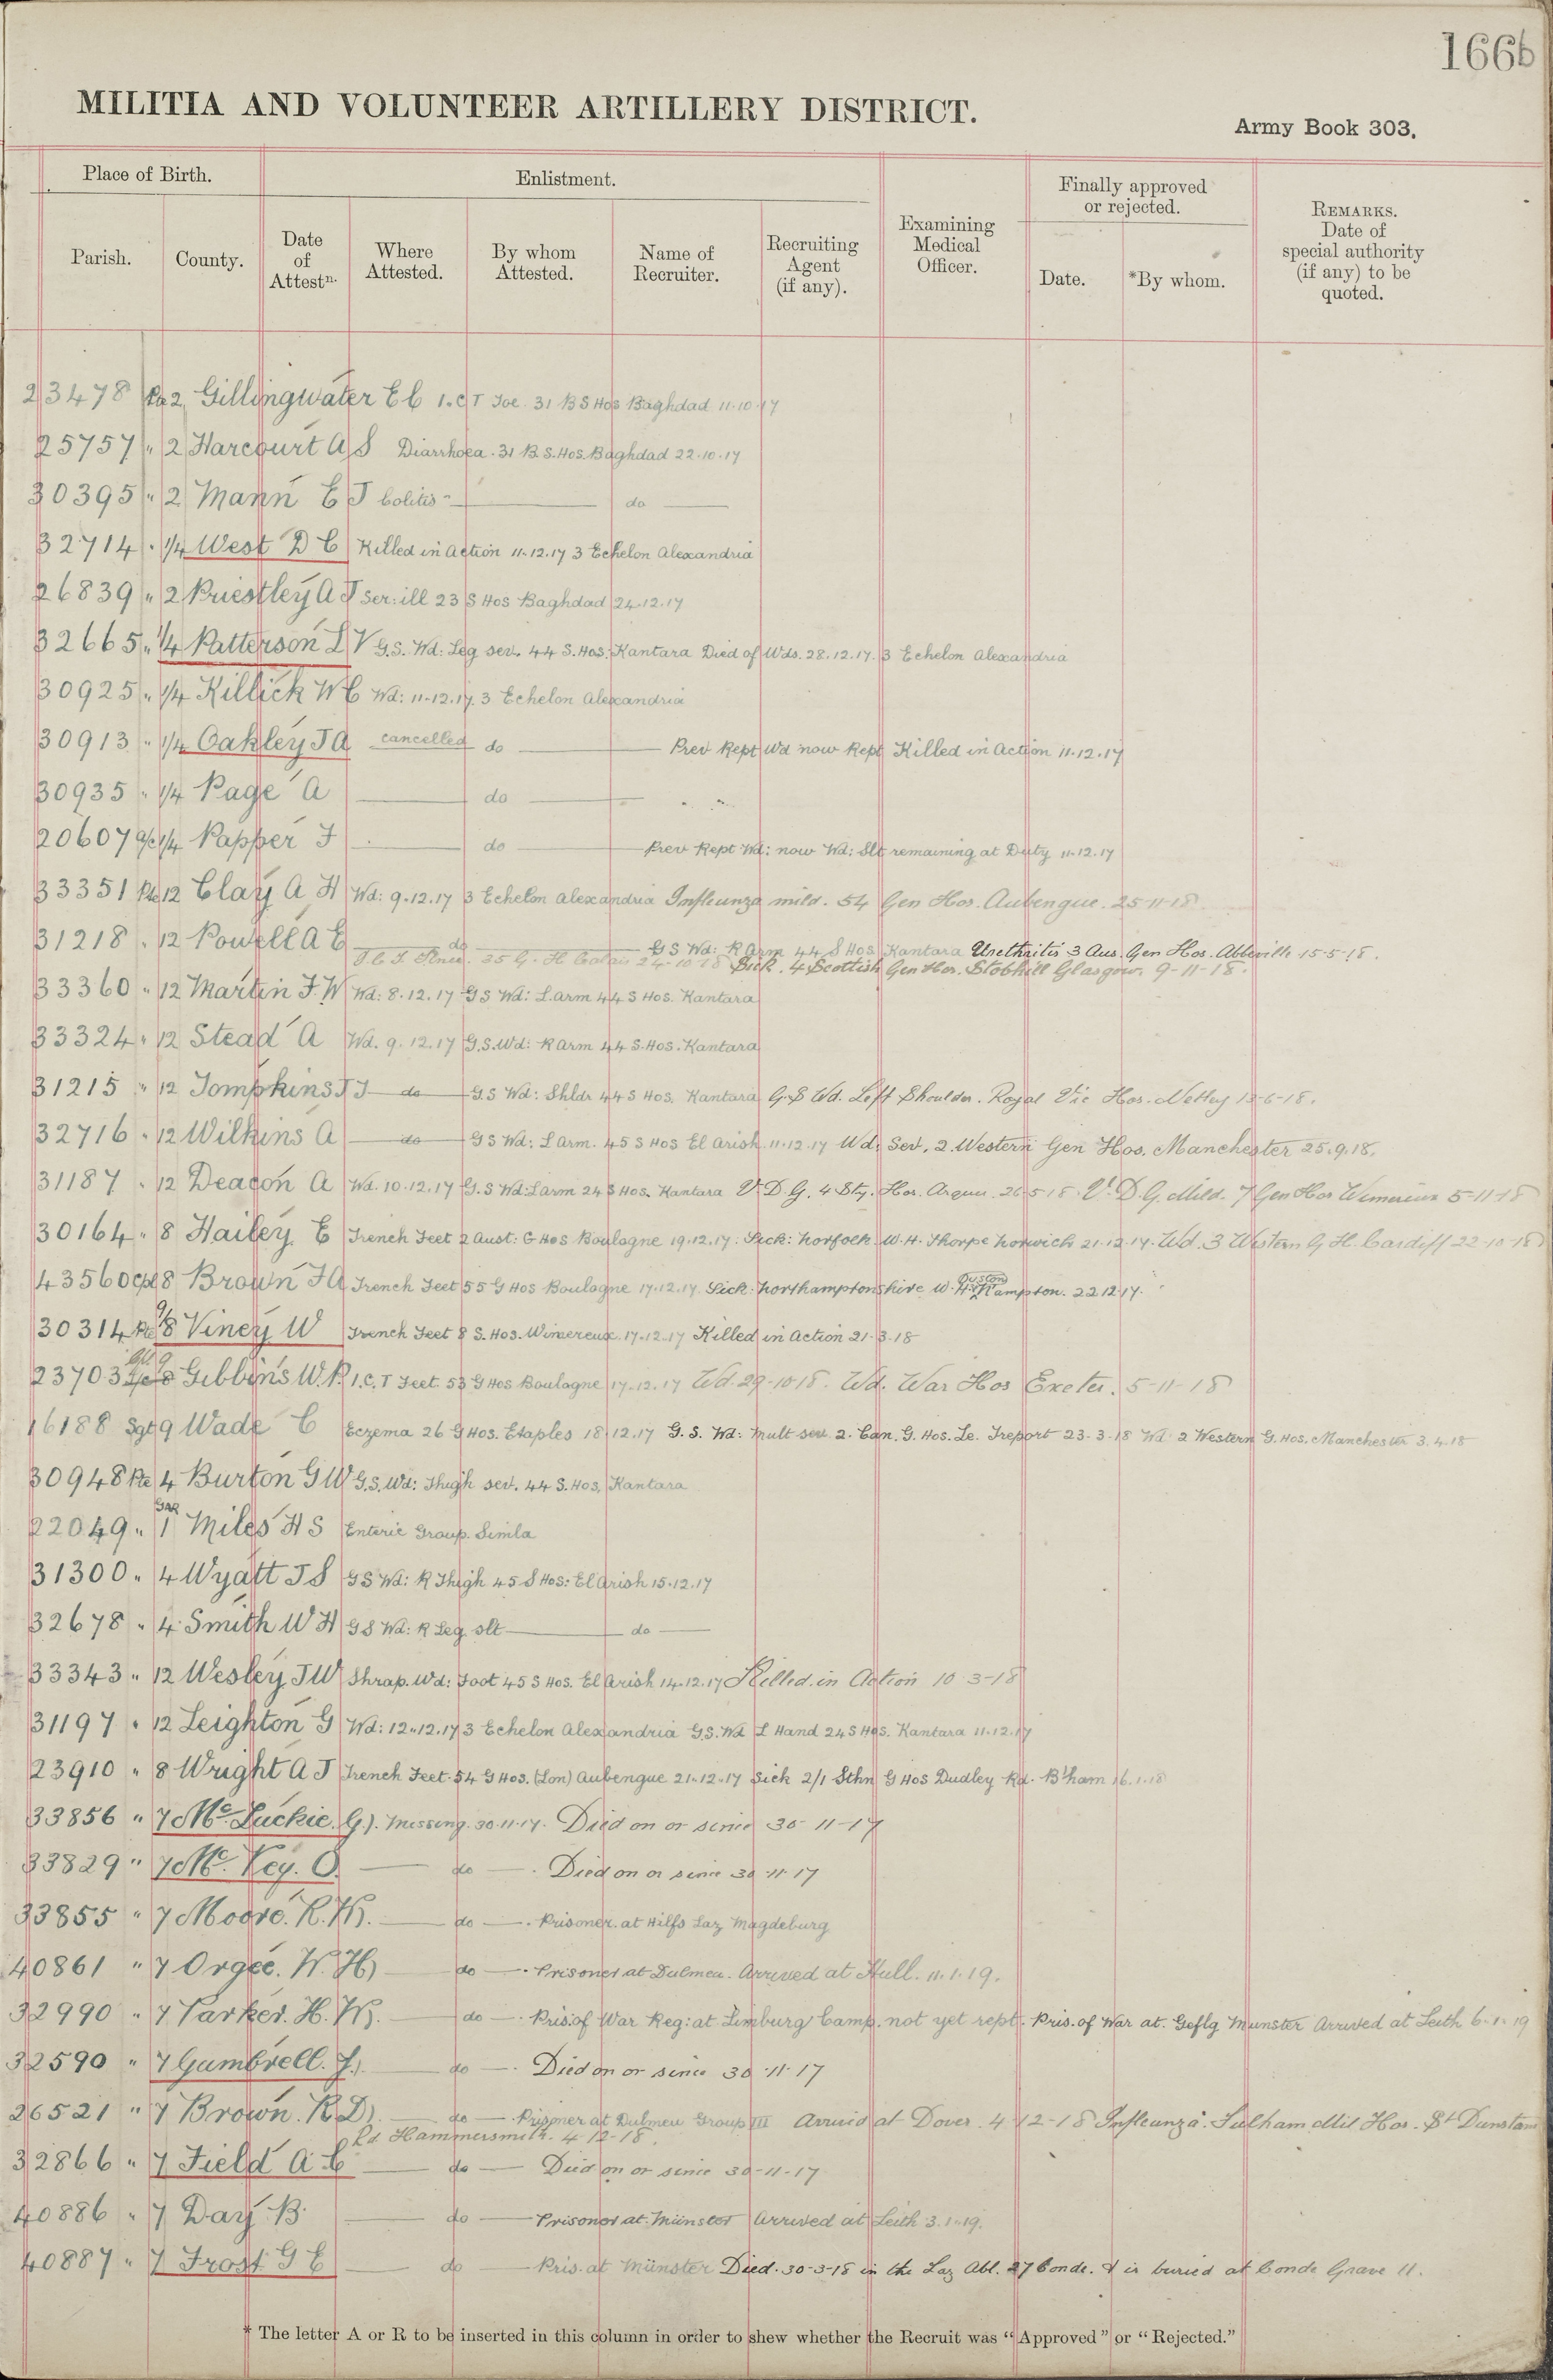 166b
MILITIA AND VOLUNTEER ARTILLERY DISTRICT.
Army Book 303.
Place of Birth.
Enlistment.
Finally approved or rejected.
Parish.
County.
Date of Attestn.
Where Attested.
By whom Attested.
Name of Recruiter.
Recruiting Agent (if any).
Examining Medical Officer.
Date.
*By whom.
REMARKS. Date of special authority (if any) to be quoted.
23478 Pte 2 Gillingwater E C I.C.T Toe. 31 B S Hos Baghdad 11.10.17
25757 " 2 Harcourt A S Diarrhoea. 31 B.S. Hos. Baghdad 22.10.17
30395 " 2 Mann E J Colitis - do
32714 " 1/4 West D C Killed in action 11.12.17 3 Echelon Alexandria
26839 " 2 Priestley A J Ser: ill 23 S Hos Baghdad 24.12.17
32665 " 1/4 Patterson L V G.S. Wd: Leg sev. 44 S. Hos. Kantara Died of Wds. 28.12.17. 3 Echelon Alexandria
30925 " 1/4 Killick W C Wd: 11-12.17. 3 Echelon Alexandria
30913 " 1/4 Oakley J A cancelled do Prev Rept Wd now Rept Killed in Action 11.12.17
30935 " 1/4 Page A do " "
20607 a/c 1/4 Papper F do Prev Rept Wd: now Wd: Slt remaining at Duty 11.12.17
33351 Pte 12 Clay A H Wd: 9.12.17 3 Echelon Alexandria Influenza mild. 54 Gen Hos. Aubengue. 25-11-18.
31218 " 12 Powell A E do G S Wd: R Arm 44 S Hos Kantara Urethritis 3 Aus. Gen Hos. Abbeville 15-5-18.
35 G. H Calais 24-10-18 Sick. 4 Scottish Gen Hos. Stobhill Glasgow. 9-11-18.
33360 " 12 Martin F. W Wd: 8.12.17 G S Wd: L. arm 44 S Hos. Kantara
33324 " 12 Stead A Wd. 9.12.17 G.S. Wd: R Arm 44 S. Hos. Kantara
31215 " 12 Tompkins J J do G.S Wd: Shldr 44 S Hos. Kantara G.S Wd. Left Shoulder. Royal Vic Hos. Netley 12-6-18.
32716 " 12 Wilkins A do G S Wd: L Arm. 45 S Hos El Arish. 11.12.17 Wd: Sev. 2. Western Gen Hos. Manchester 25.9.18.
31187 " 12 Deacon A Wd. 10.12.17 G.S Wd: L arm 24 S Hos. Kantara V.D.G. 4 Sty. Hos. Arques 26.5.18. V.D.G. Mild. 7 Gen Hos Wimereux 5-11-18
30164 " 8 Hailey E Trench Feet 2 Aust: G Hos Boulogne 19.12.17. Sick: Norfolk W.H. Thorpe Norwich 21.12.17. Wd. 3 Western G H. Cardiff 22-10-18
43560 Cpl 8 Brown F A Trench Feet 55 G Hos Boulogne 17.12.17 Sick: Northamptonshire W. H. Duston N'ampton. 22.12.17.
30314 Pte 8 Viney W Trench Feet 8 S. Hos. Wimereux. 17.12.17 Killed in action 21.3.18
23703 8 Gibbins W. R I.C.T Feet. 53 G Hos Boulogne 17.12.17 Wd. 29-10-18. Wd. War Hos Exeter. 5-11-18
16188 Sgt 9 Wade C Eczema 26 G Hos. Etaples 18.12.17 G. S. Wd: Mult sev. 2. Can. G. Hos. Le. Treport 23-3-18 Wd 2 Western G. Hos. Manchester 3.4.18
30948 Pte 4 Burton G W G.S. Wd: Thigh sev. 44 S. Hos. Kantara
22049 " Gar 1 Miles H S Enteric Group. Simla
31300 " 4 Wyatt J S G S Wd: R Thigh 45 S Hos: El Arish 15.12.17
32678 " 4 Smith W H G S Wd: R Leg slt do
33343 " 12 Wesley J W Shrap. Wd: Foot 45 S Hos. El Arish 14.12.17 Killed in Action 10-3-18
31197 " 12 Leighton G Wd: 12.12.17 3 Echelon Alexandria G.S. Wd L Hand 24 S Hos. Kantara 11.12.17
23910 " 8 Wright A J Trench Feet. 54 G Hos. (Lon) Aubengue 21.12.17 Sick 2/1 Sthn G Hos Dudley Rd. B'ham 16.1.18
33856 " 7 Mc Luckie. G.J. Missing. 30.11.17. Died on or since 30-11-17
33829 " 7 Mc. Vey. O. do Died on or since 30.11.17
33855 " 7 Moore. R. W. do Prisoner at Hilfs Laz Magdeburg
40861 " 7 Orgee. W. H. do Prisoner at Dulmen. Arrived at Hull. 11.1.19.
32990 " 7 Parker. H. W. do Pris: of War Reg: at Limburg Camp. not yet rept. Pris. of War at. Geflg Munster Arrived at Leith 6.1.19
32590 " 7 Gumbrell. J. do Died on or since 30.11.17
26521 " 7 Brown. R. D. do Prisoner at Dulmen Group III Arrived at Dover. 4-12-18 Influenza. Fulham Mil Hos. St Dunstan
Rd Hammersmith. 4-12-18.
32866 " 7 Field A. C do Died on or since 30-11-17
40886 " 7 Day. B. do Prisoner at Münster Arrived at Leith 3.1.19.
40887 " 7 Frost G E do Pris. at Münster Died. 30-3-18 in the Laz Abl. 27 Conde. & is buried at Conde Grave 11.
* The letter A or R to be inserted in this column in order to shew whether the Recruit was "Approved" or "Rejected."